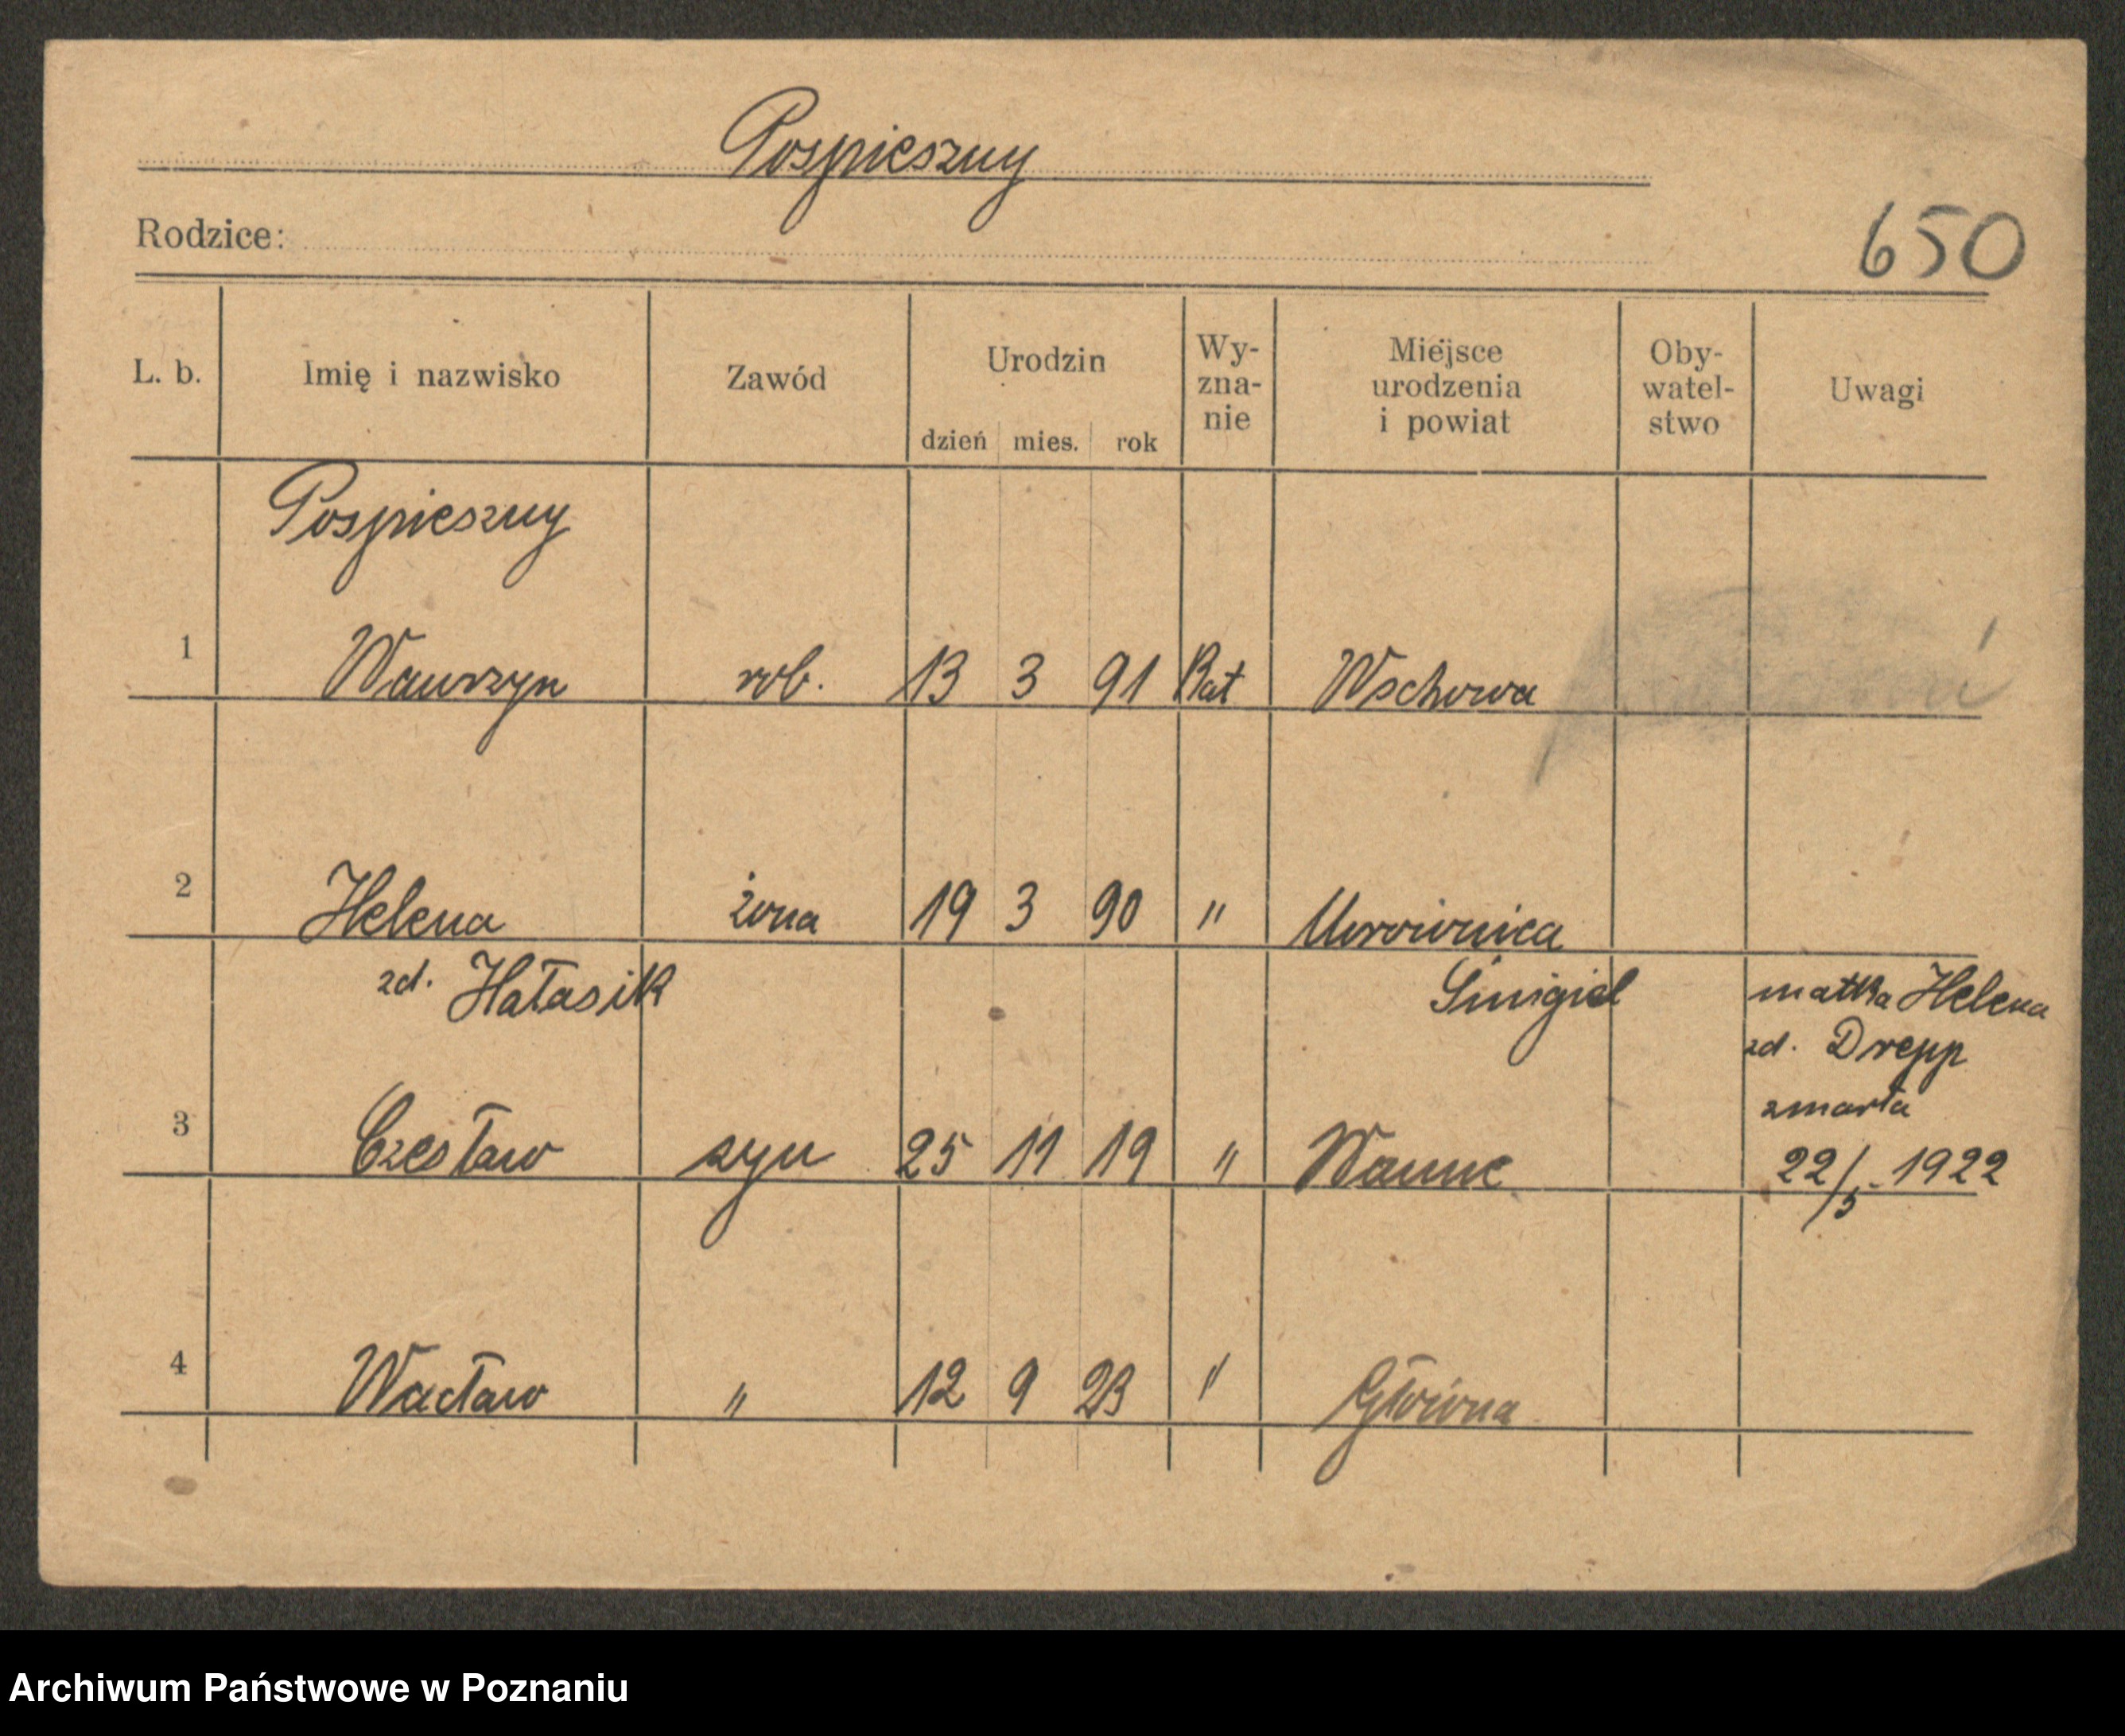 Pospieszny
Rodzice:
650
L. b. Imię i nazwisko Zawód Urodzin dzień mies. rok Wy-zna-nie Miejsce urodzenia i powiat Oby-watel-stwo Uwagi
Pospieszny
1 Wawrzyn rob. 13 3 91 Kat Wschowa
2 Helena żona 19 3 90 " Mórownica
zd. Hałasik Śmigiel matka Helena
zd. Drepp
zmarła
3 Czesław syn 25 11 19 " Wanne 22/5 1922
4 Wacław " 12 9 23 " Główna
Archiwum Państwowe w Poznaniu